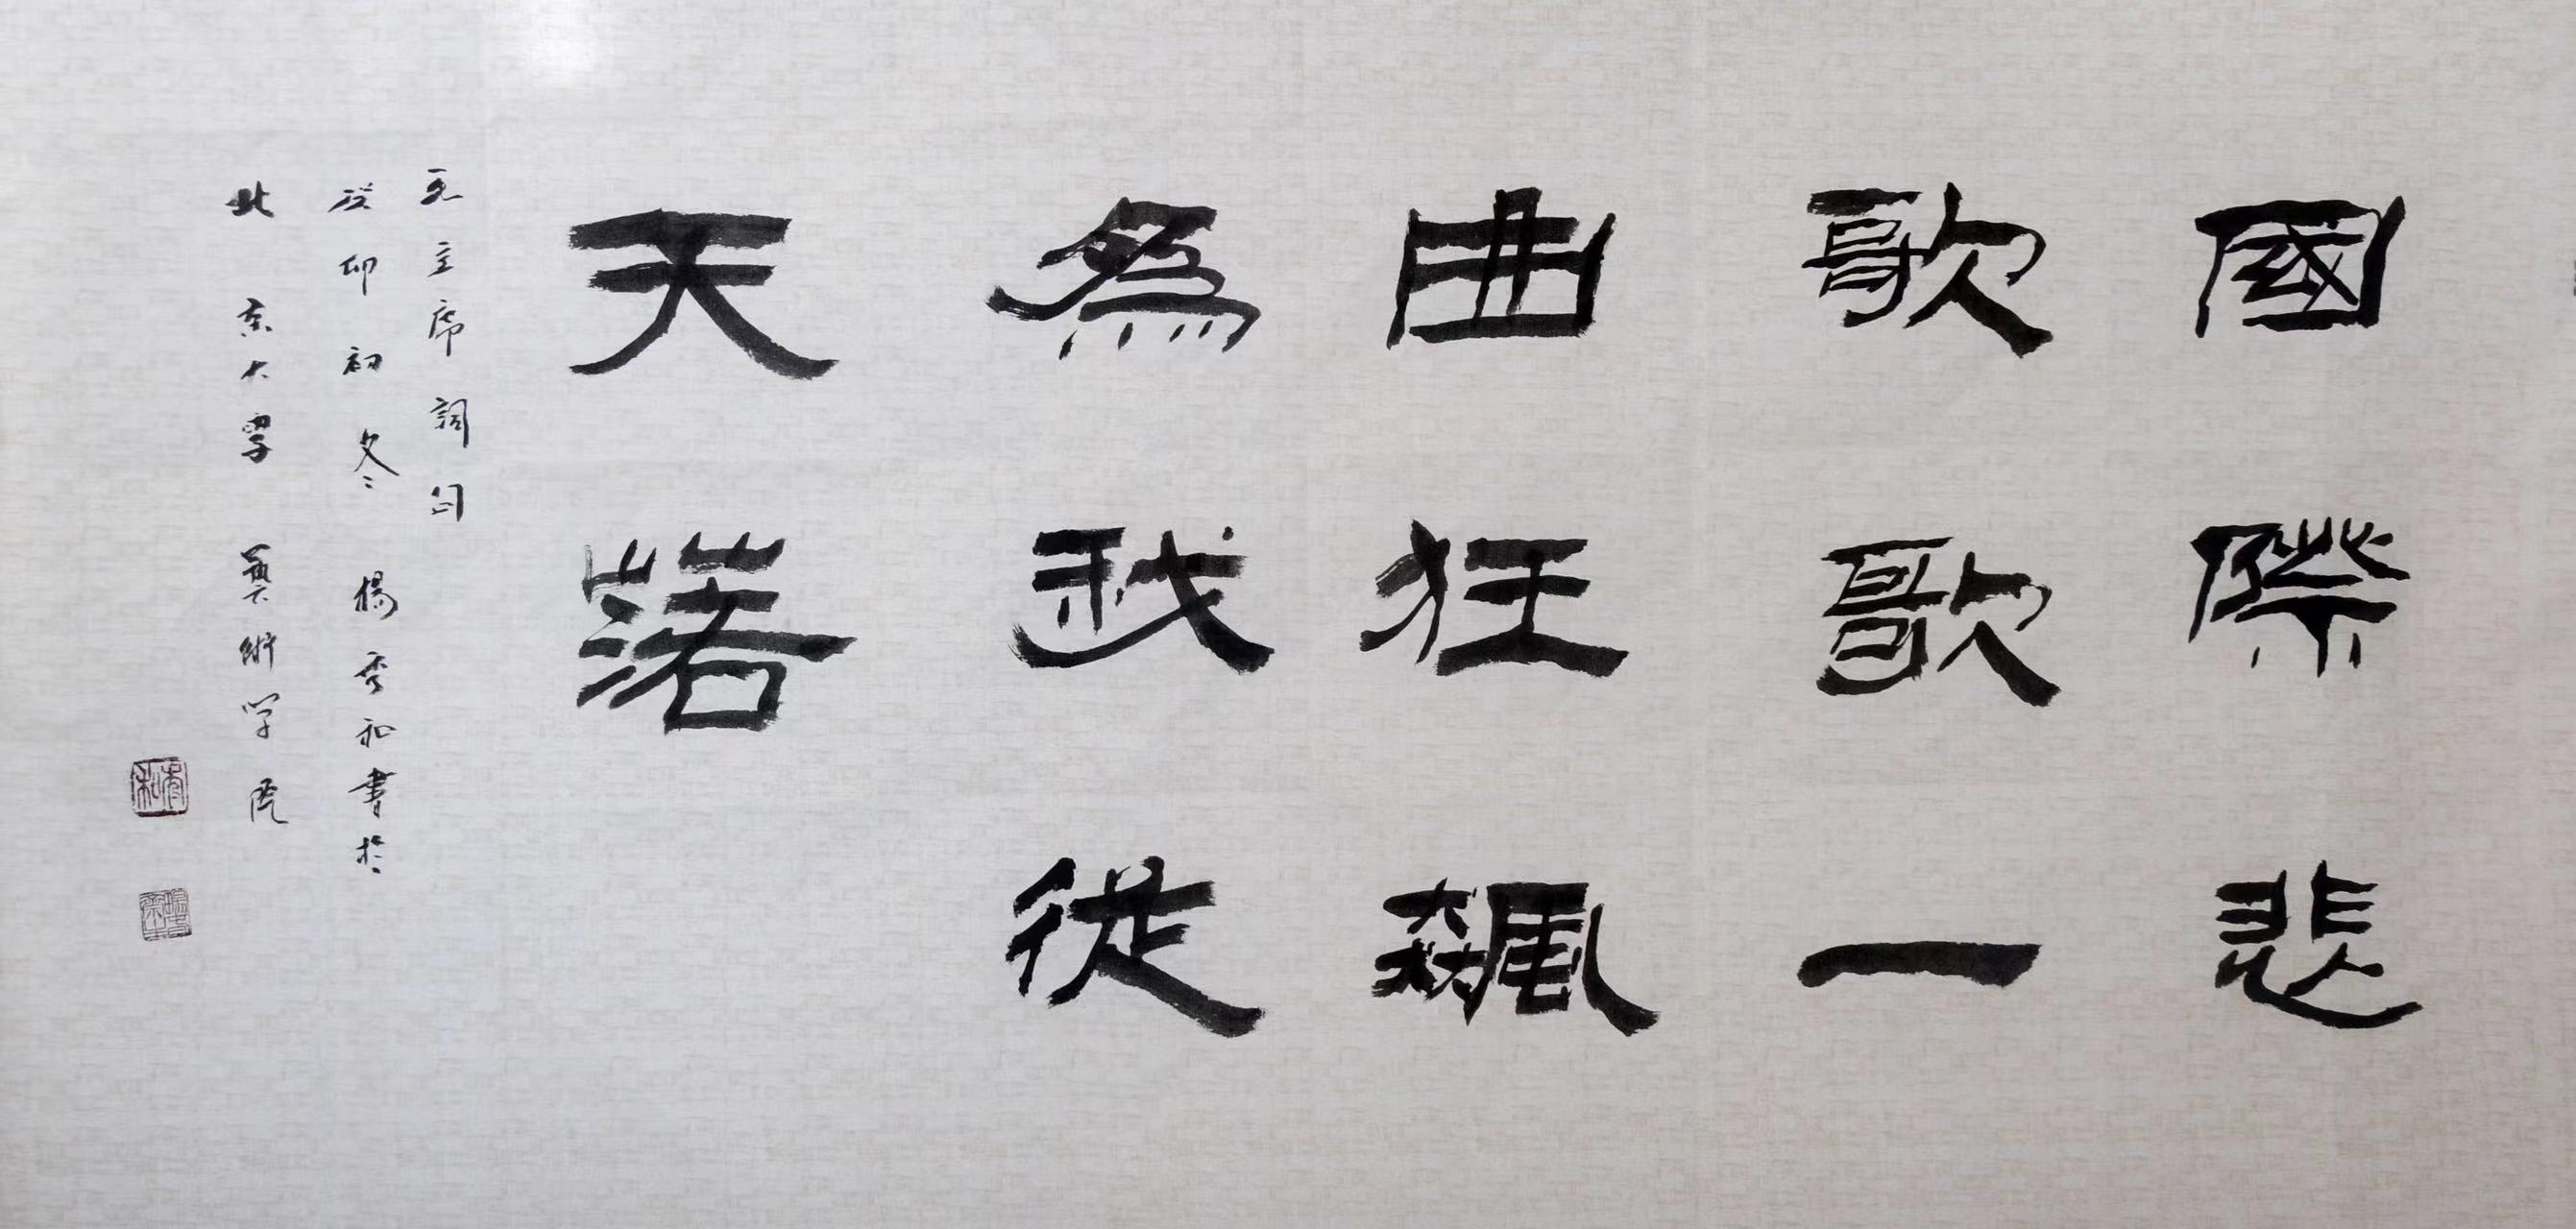 國際悲
歌歌一
曲狂飆
為我從
天落
毛主席詞句
癸卯初冬 楊秀和書於
北京大學 藝術学院